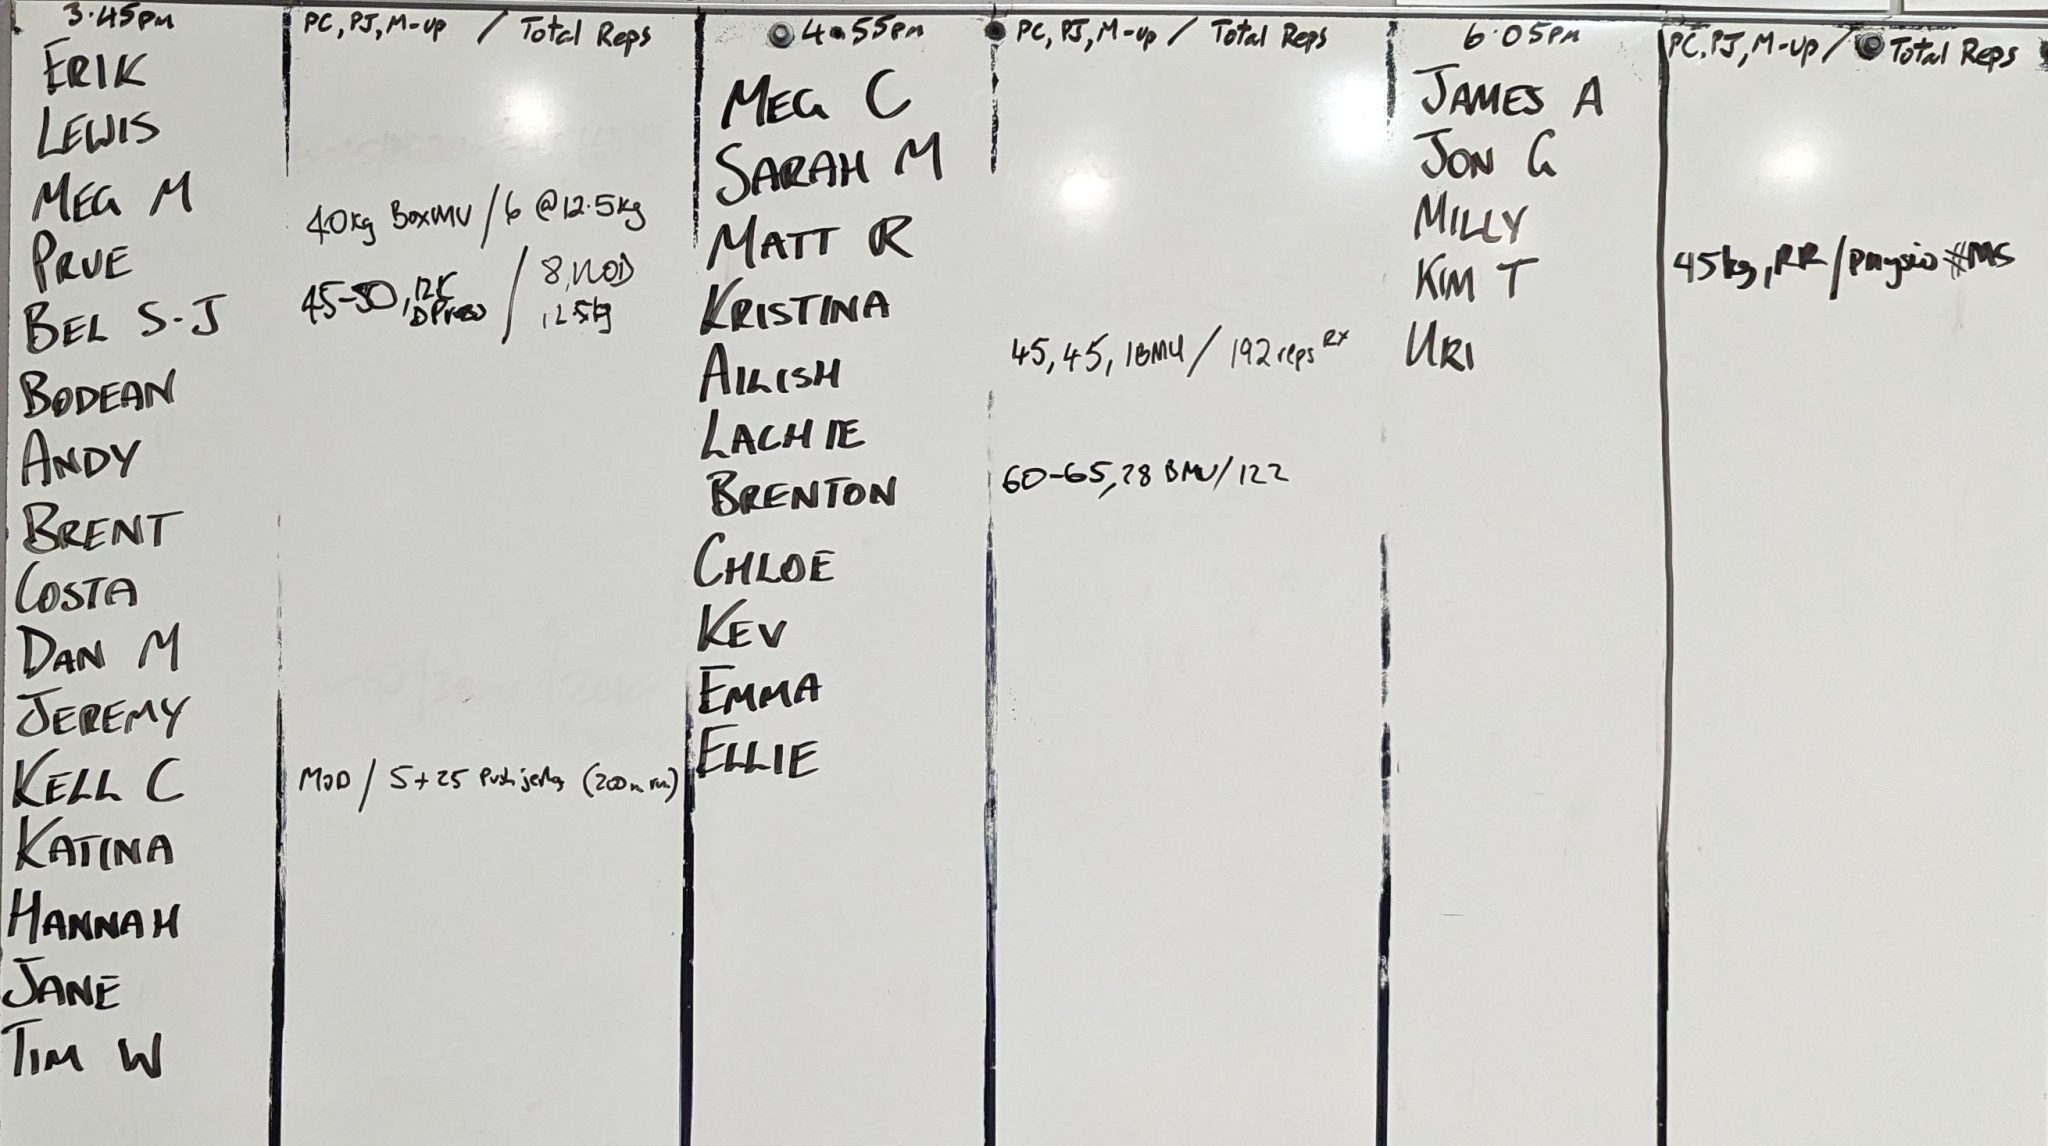 3.45pm PC, PJ, M-up / Total Reps
ERIK
LEWIS
MEG M
PRUE 40kg BoxMU / 6 @12.5kg
BEL S-J 45-50, 12.5 DPress / 8, MOD 12.5kg
BODEAN
ANDY
BRENT
COSTA
DAN M
JEREMY
KELL C MOD / 5+25 Push jerks (200m run)
KATINA
HANNAH
JANE
TIM W
4.55pm PC, PJ, M-up / Total Reps
MEG C
SARAH M
MATT R
KRISTINA
AILISH 45, 45, 1BMU / 192 reps Rx
LACHIE
BRENTON 60-65, 28 BMU / 122
CHLOE
KEV
EMMA
ELLIE
6.05pm PC, PJ, M-up / Total Reps
JAMES A
JON G
MILLY
KIM T 45kg, RR / physio #MS
URI